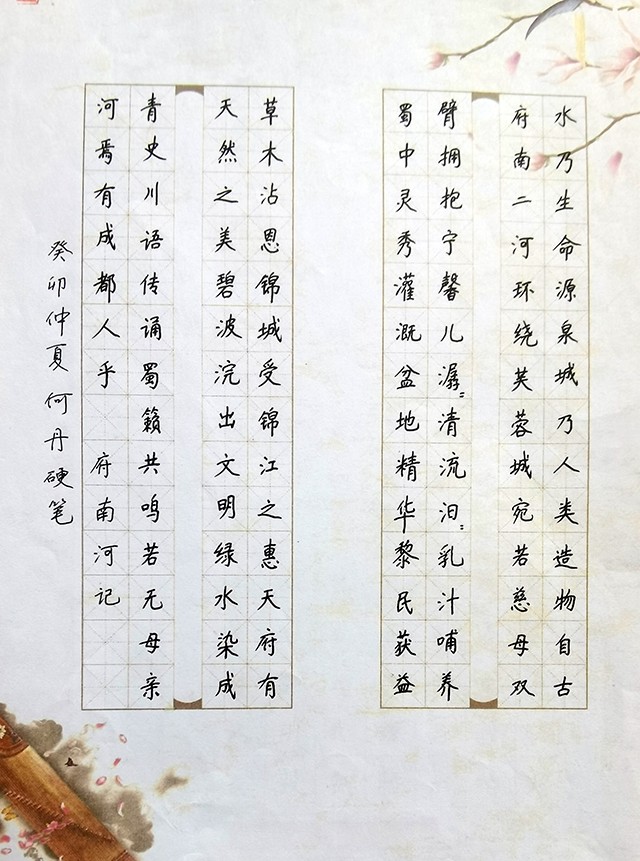 水乃生命源泉城乃人类造物自古
府南二河环绕芙蓉城宛若慈母双
臂拥抱宁馨儿潺〻清流汩〻乳汁哺养
蜀中灵秀灌溉盆地精华黎民获益
草木沾恩锦城受锦江之惠天府有
天然之美碧波浣出文明绿水染成
青史川语传诵蜀籁共鸣若无母亲
河焉有成都人乎 府南河记
癸卯仲夏何丹硬笔